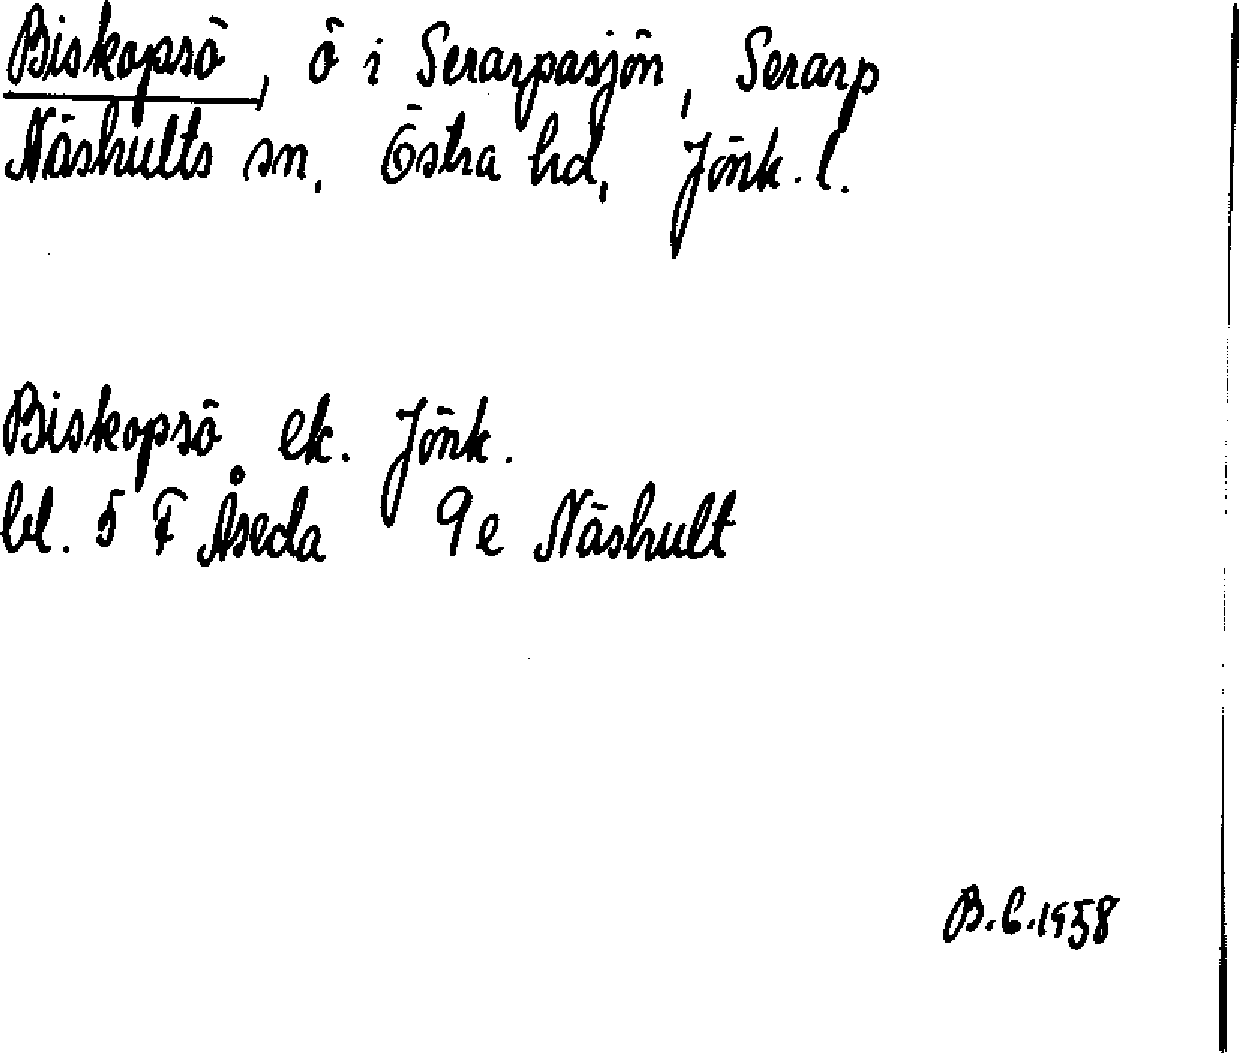 Biskopsö, ö i Serarpasjön, Serarp
Näshults sn, Östra hd, Jönk. l.
Biskopsö ek. Jönk.
bl. 5 F Åseda 9e Näshult
B.C.1958